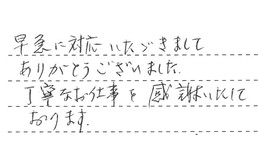 早急に対応いただきまして
ありがとうございました.
丁寧なお仕事を感謝いたして
おります.